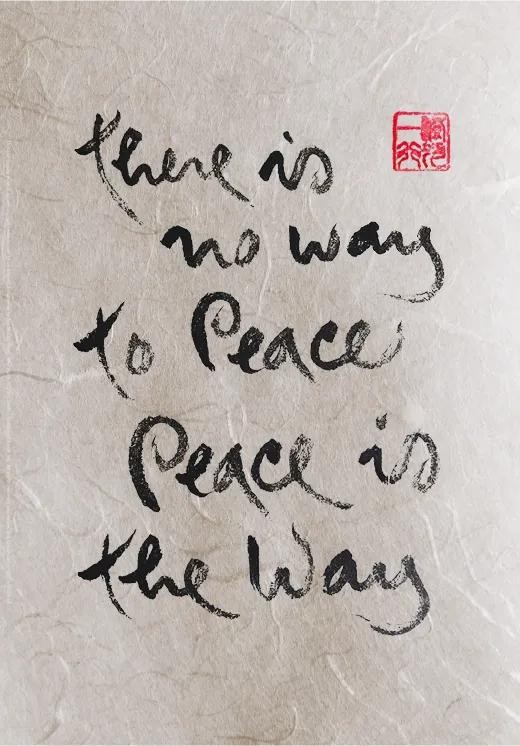 there is
no way
to Peace
Peace is
the Way